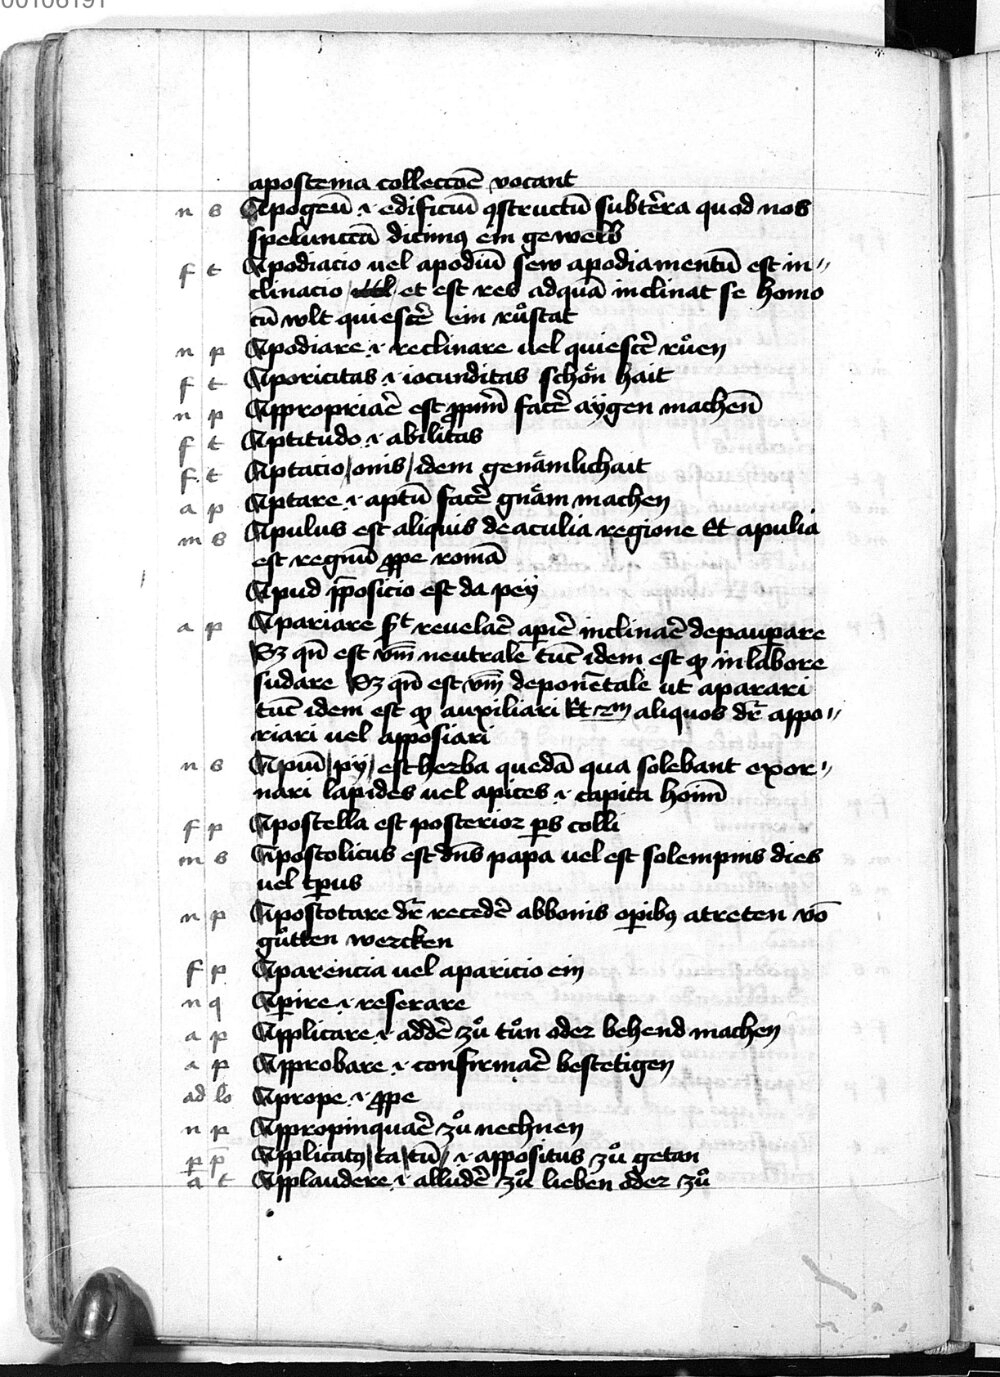 00106191
apostema collecc̄oe vocant
n s Apogeū .i. edificiū ꝯstructū subt̄erra quod nos
spelunccā dicimꝯ ein gewelb
f t Apodiacio uel apodiū sew apodiamentū est in〃
clinacio et est res adquā inclinat se homo
cū wlt quiescē ein růstat
n p Apodiare .i. reclinare uel quiescē růen
f t Aporicitas .i. iocunditas schön hait
n p Appropriaē est ꝓpiū facē aÿgen machen̄
f t Aptitudo .i. abilitas
f t Aptacio/onis/idem genämlichait
a p Aptare .i. aptū facē gnäm machen
m s Apulus est aliquis de aculia regione Et apulia
est regnū ꝓpe romā
Apud p̄positio est da peÿ
a p Apariare s̄t reuelaē ap̱iē inclinaē depaup̱are
Sꝫ qn̄ est v̄m neutrale tūc idem est qꝫ in labore
sudare Sꝫ qn̄ est v̄m deponētale ut aparari
tūc idem est qꝫ auxiliari Et aliquos dr̄ appo〃
riari uel apposiari
n s Apiū/pÿ/est herba quedā qua solebant exor〃
nari lapides uel apices .i. capita hoim̄
f p Apostella est posterior p̱s colli
m s Apostolicus est dn̄s papa uel est solempnis dies
uel tp̱us
n p Apostotare dr̄ recedē abbonis op̱ibꝯ atreten vō
gůtten wercken
f p Aparencia uel aparicio ein
n q Ap̱ire .i. reserare
a p Applicare .i. addē zů tůn oder behend machen
a p Approbare .i. confirmaē bestetigen
ad lo Aprope .i. ꝓpe
n p Appropinquaē zů nechnen
p p̄ Applicatꝯ/ta/tū/ .i. appositus zů getan
a t Applaudere .i. alludē zů lieben oder zů